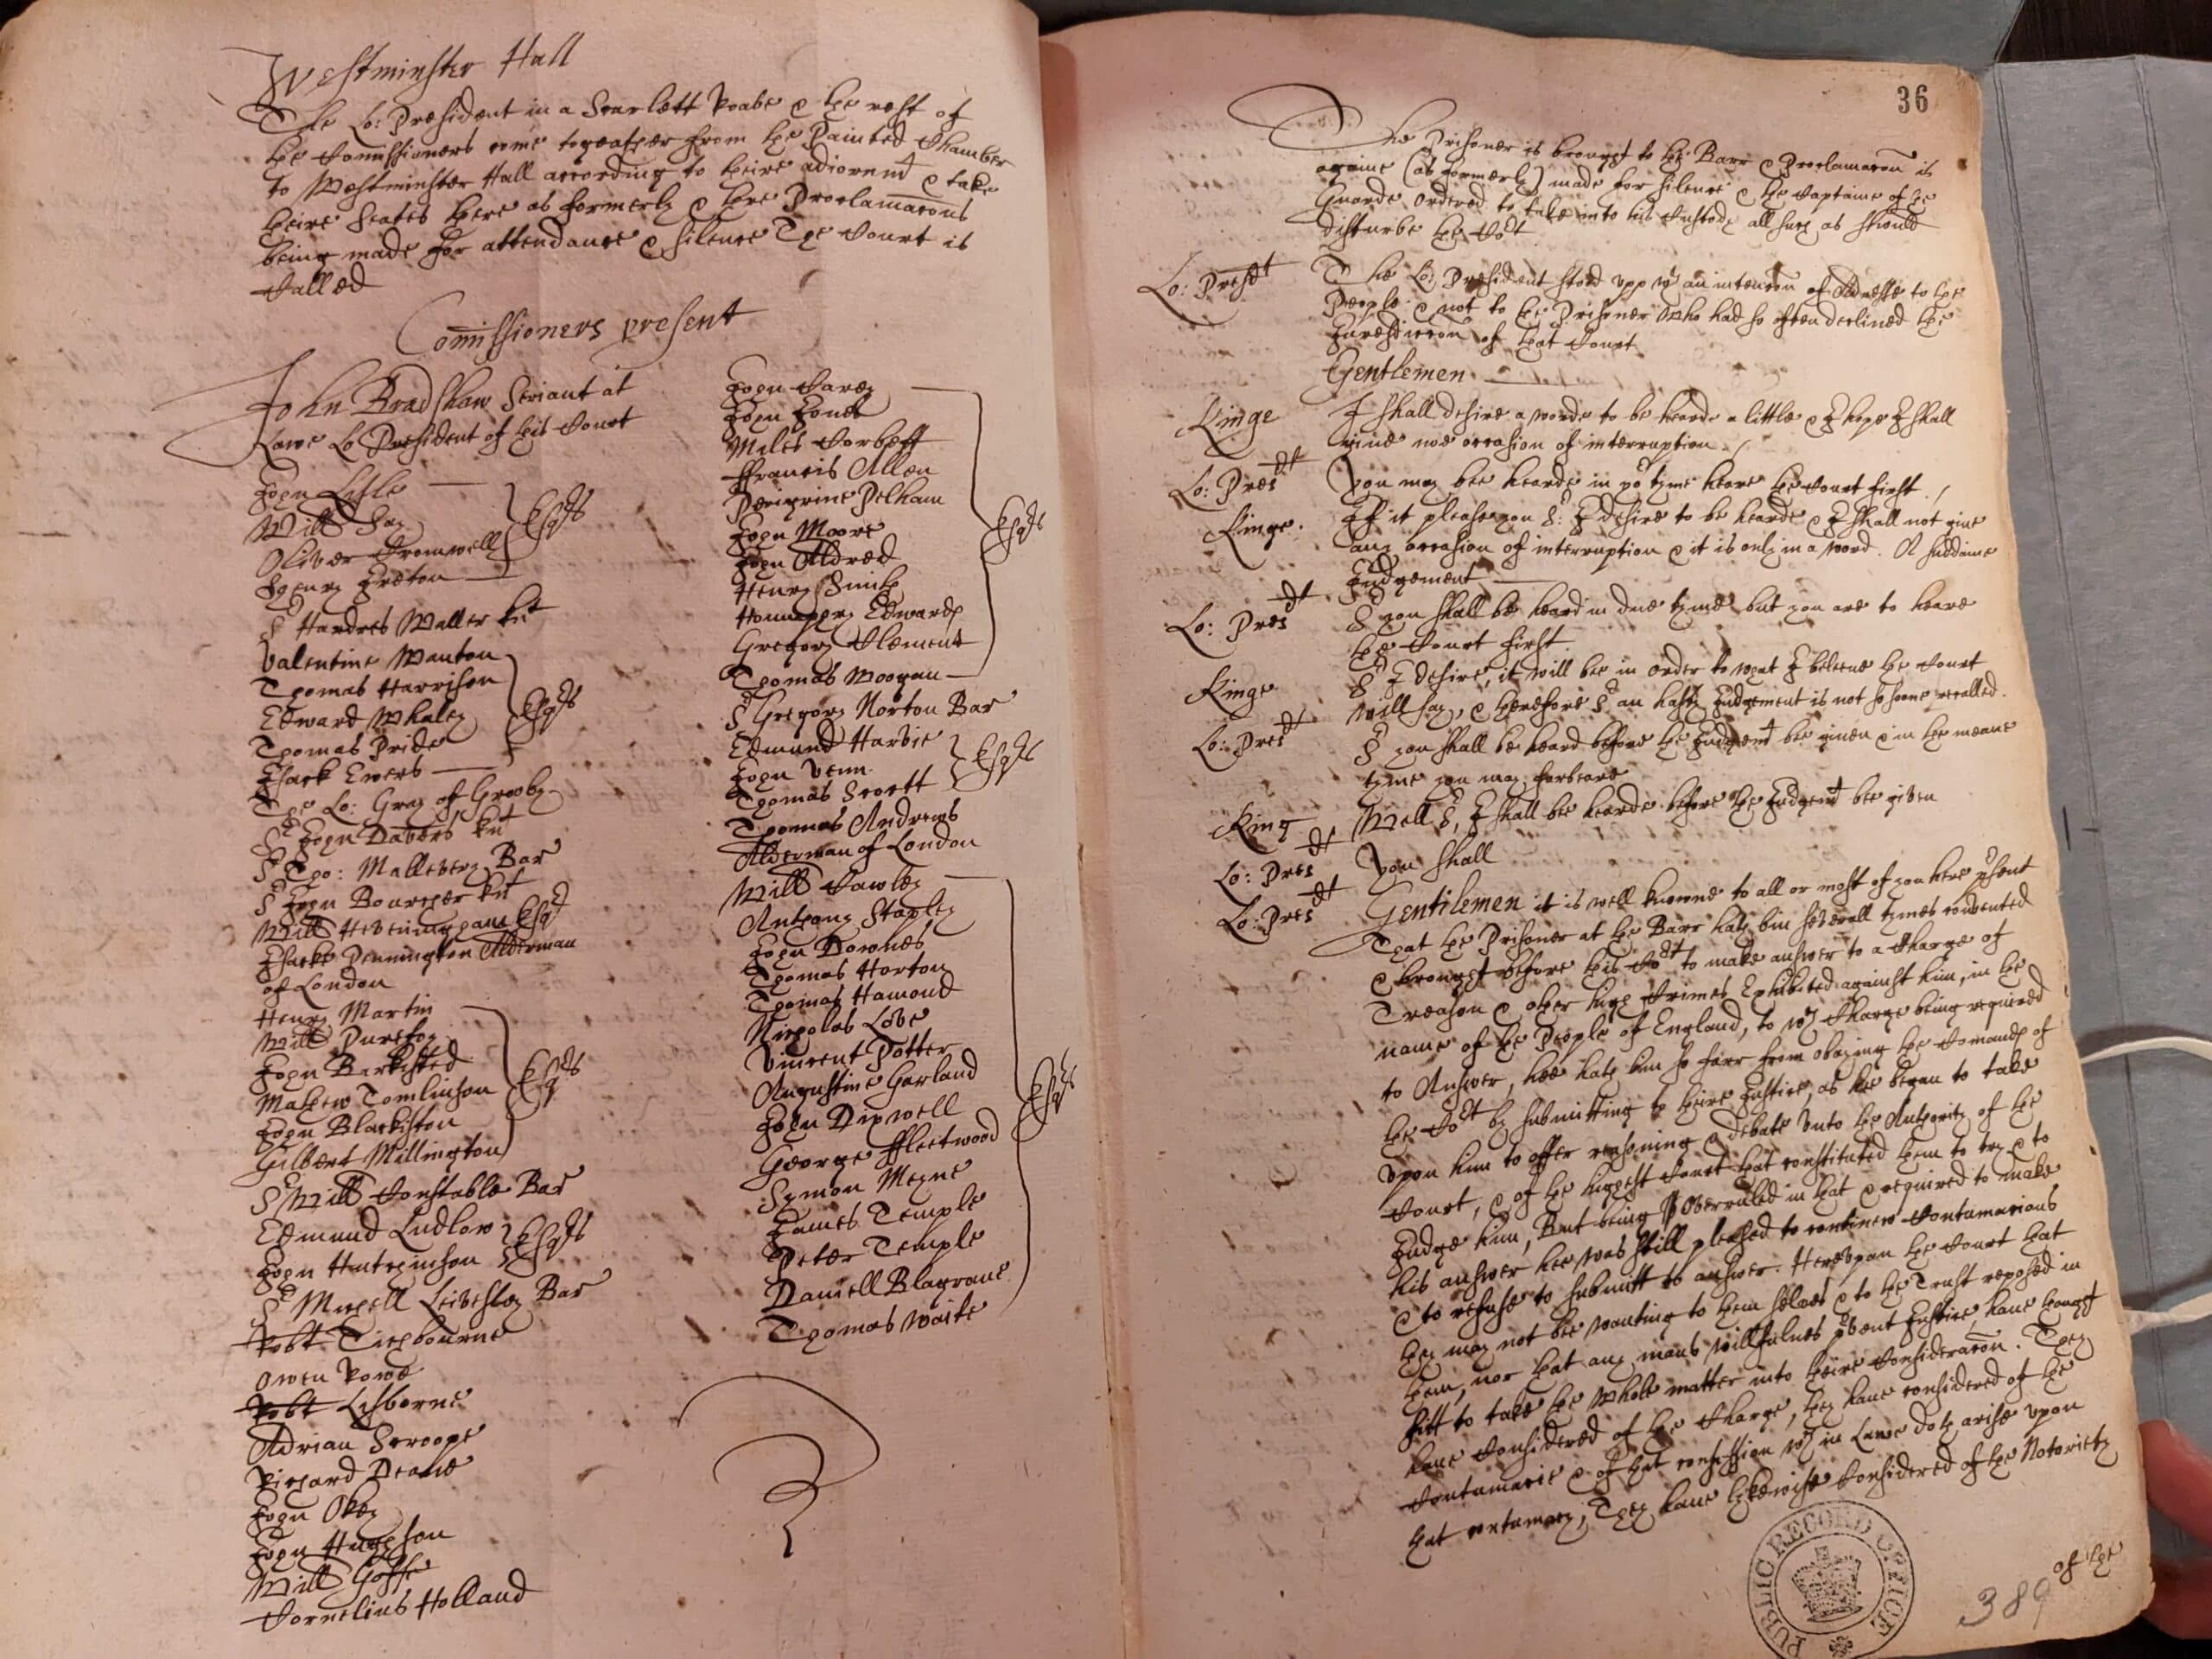 Westminster Hall
The Lo: President in a Scarlett Roabe & the rest of
the Comissioners come togeather from the Painted Chamber
to Westminster Hall according to theire adiornmt & take
theire Seates there as formerly & three Proclamacons
being made for attendance & silence The Court is
Called
Comissioners present
John Bradshaw Seriant at
Lawe Lo President of this Court
John Lisle
Will Say
Oliver Cromwell
Henry Ireton
Esqrs
Sr Hardres Waller Knt
Valentine Wauton
Thomas Harrison
Edward Whaley
Thomas Pride
Isack Ewers
Esqrs
The Lo: Grey of Grooby
Sr John Davers Knt
Sr Tho: Malleverey Bar
Sr John Bourcher Knt
Will Heveningham Esqr
Isacke Pennington Alderman
of London
Henry Martin
Will Purefoy
John Barkisted
Mathew Tomlinson
John Blackiston
Gilbert Millington
Esqrs
Sr Will Constable Bar
Edmund Ludlow
John Hutchinson
Esqrs
Sr Michell Livesley Bar
Robt Tichbourne
Owen Rowe
Robt Lilborne
Adrian Scroope
Richard Deane
John Okey
John Hughson
Will Goffe
Cornelius Holland
John Carey
John Jones
Miles Corbett
Francis Allen
Peregrine Pelham
John Moore
John Aldred
Henry Smith
Humphery Edwards
Gregory Clement
Thomas Woogan
Esqrs
Sr Gregory Norton Bar
Edmund Harvie
John Venn
Thomas Scott
Esqrs
Thomas Andrews
Alderman of London
Will Cawley
Anthony Stapley
John Downes
Thomas Horton
Thomas Hamond
Nicholas Love
Vincent Potter
Augustine Garland
John Dixwell
George Fleetwood
Symon Meyne
James Temple
Peter Temple
Daniell Blagrave
Thomas Waite
Esqrs
36
The Prisoner is brought to the Barr & Proclamacon is
againe (as formerly) made for silence & the Captaine of the
Guarde ordered to take into his Custody all such as should
disturbe the Cort
Lo: Presdt
The Lo: President stood upp wth an intencon of Adresse to the
People & not to the Prisoner who had so often declined the
Jurisdiccon of that Court
Gentlemen
Kinge
I shall desire a worde to be hearde a little & I hope I shall
give noe occasion of interruption
Lo: Presdt
You may bee hearde in yor tyme heare the Court first
Kinge
If it please you Sr: I desire to be hearde & I shall not give
any occasion of interruption & it is only in a word. A suddaine
Judgement
Lo: Presdt
Sr you shall be heard in due tyme but you are to heare
the Court first
Kinge
Sr I desire, it will bee in order to what I beleeve the Court
will say, & therefore Sr an hasty Judgement is not so soone recalled.
Lo: Presdt
Sr you shall be heard before the Judgemt be given & in the meane
tyme you may forbeare
King
Well Sr, I shall bee hearde before the Judgemt bee given
Lo: Presdt
You shall
Lo: Presdt
Gentilemen it is well knowne to all or most of you here prsent
That the Prisoner at the Barr hath bin severall tymes convented
& brought before this Cort to make answer to a Charge of
Treason & other high Crimes Exhibited against him, in the
name of the People of England, to wch Charge being required
to Answer, hee hath bin so farr from obeying the Comands of
the Cort by submitting to theire Justice, as hee began to take
upon him to offer reasoning & debate unto the Authority of the
Court, & of the highest Court that constituted them to try & to
Judge him, But being Overruled in that & required to make
his answer hee was still pleased to continew Contumacious
& to refuse to submitt to answer. Hereupon the Court that
they may not bee wanting to them selves & to the Trust reposed in
them, nor that any mans willfulnes prvent Justice, have thought
fitt to take the whole matter into theire Consideracon. They
have Considered of the Charge, they have considered of the
Contumacie & of that confession wch in Lawe doth arise upon
that contumacy, They have likewise Considered of the Notoriety
of the
PUBLIC RECORD OFFICE
389